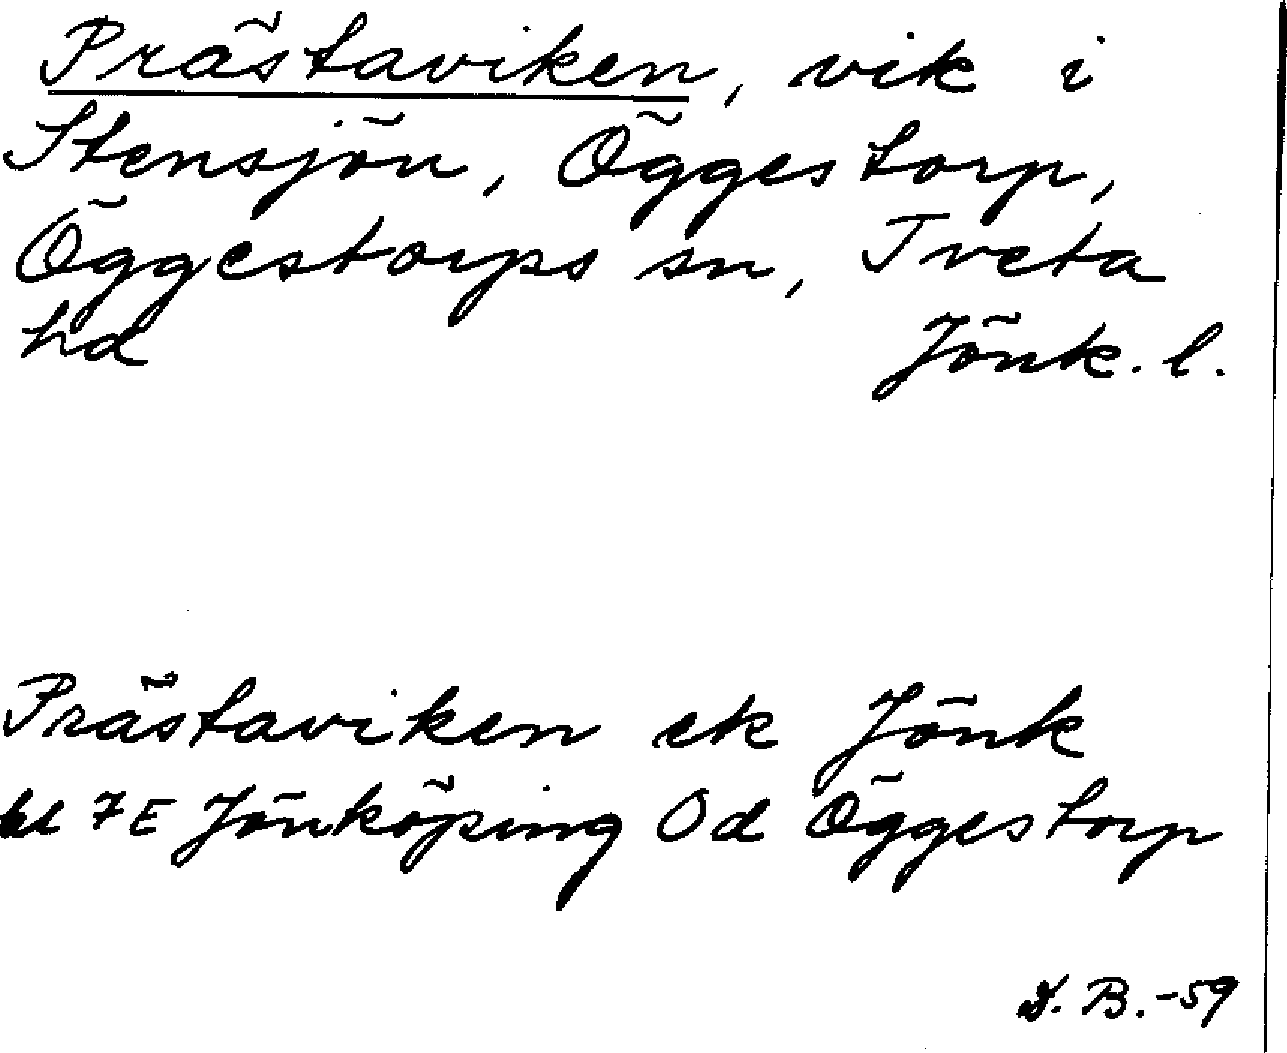 Prästaviken, vik i
Stensjön, Öggestorp,
Öggestorps sn, Tveta
hd Jönk. l.
Prästaviken ek Jönk
bl 7E Jönköping Od Öggestorp
B.-59